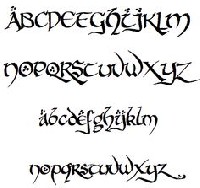 ÄBCDEFGHÏJKLM
NOPQRSTUVWXYZ
äbcdêfghïjklm
nopqrstuvwxyz